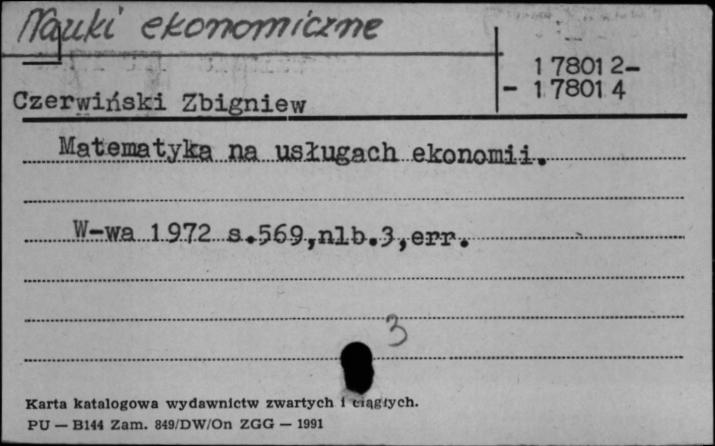 Nauki ekonomiczne
178012-
- 178014
Czerwiński Zbigniew
Matematyka na usługach ekonomii.
W-wa 1972 s.569,nlb.3,err.
3
Karta katalogowa wydawnictw zwartych i ciągłych.
PU — B144 Zam. 849/DW/On ZGG — 1991